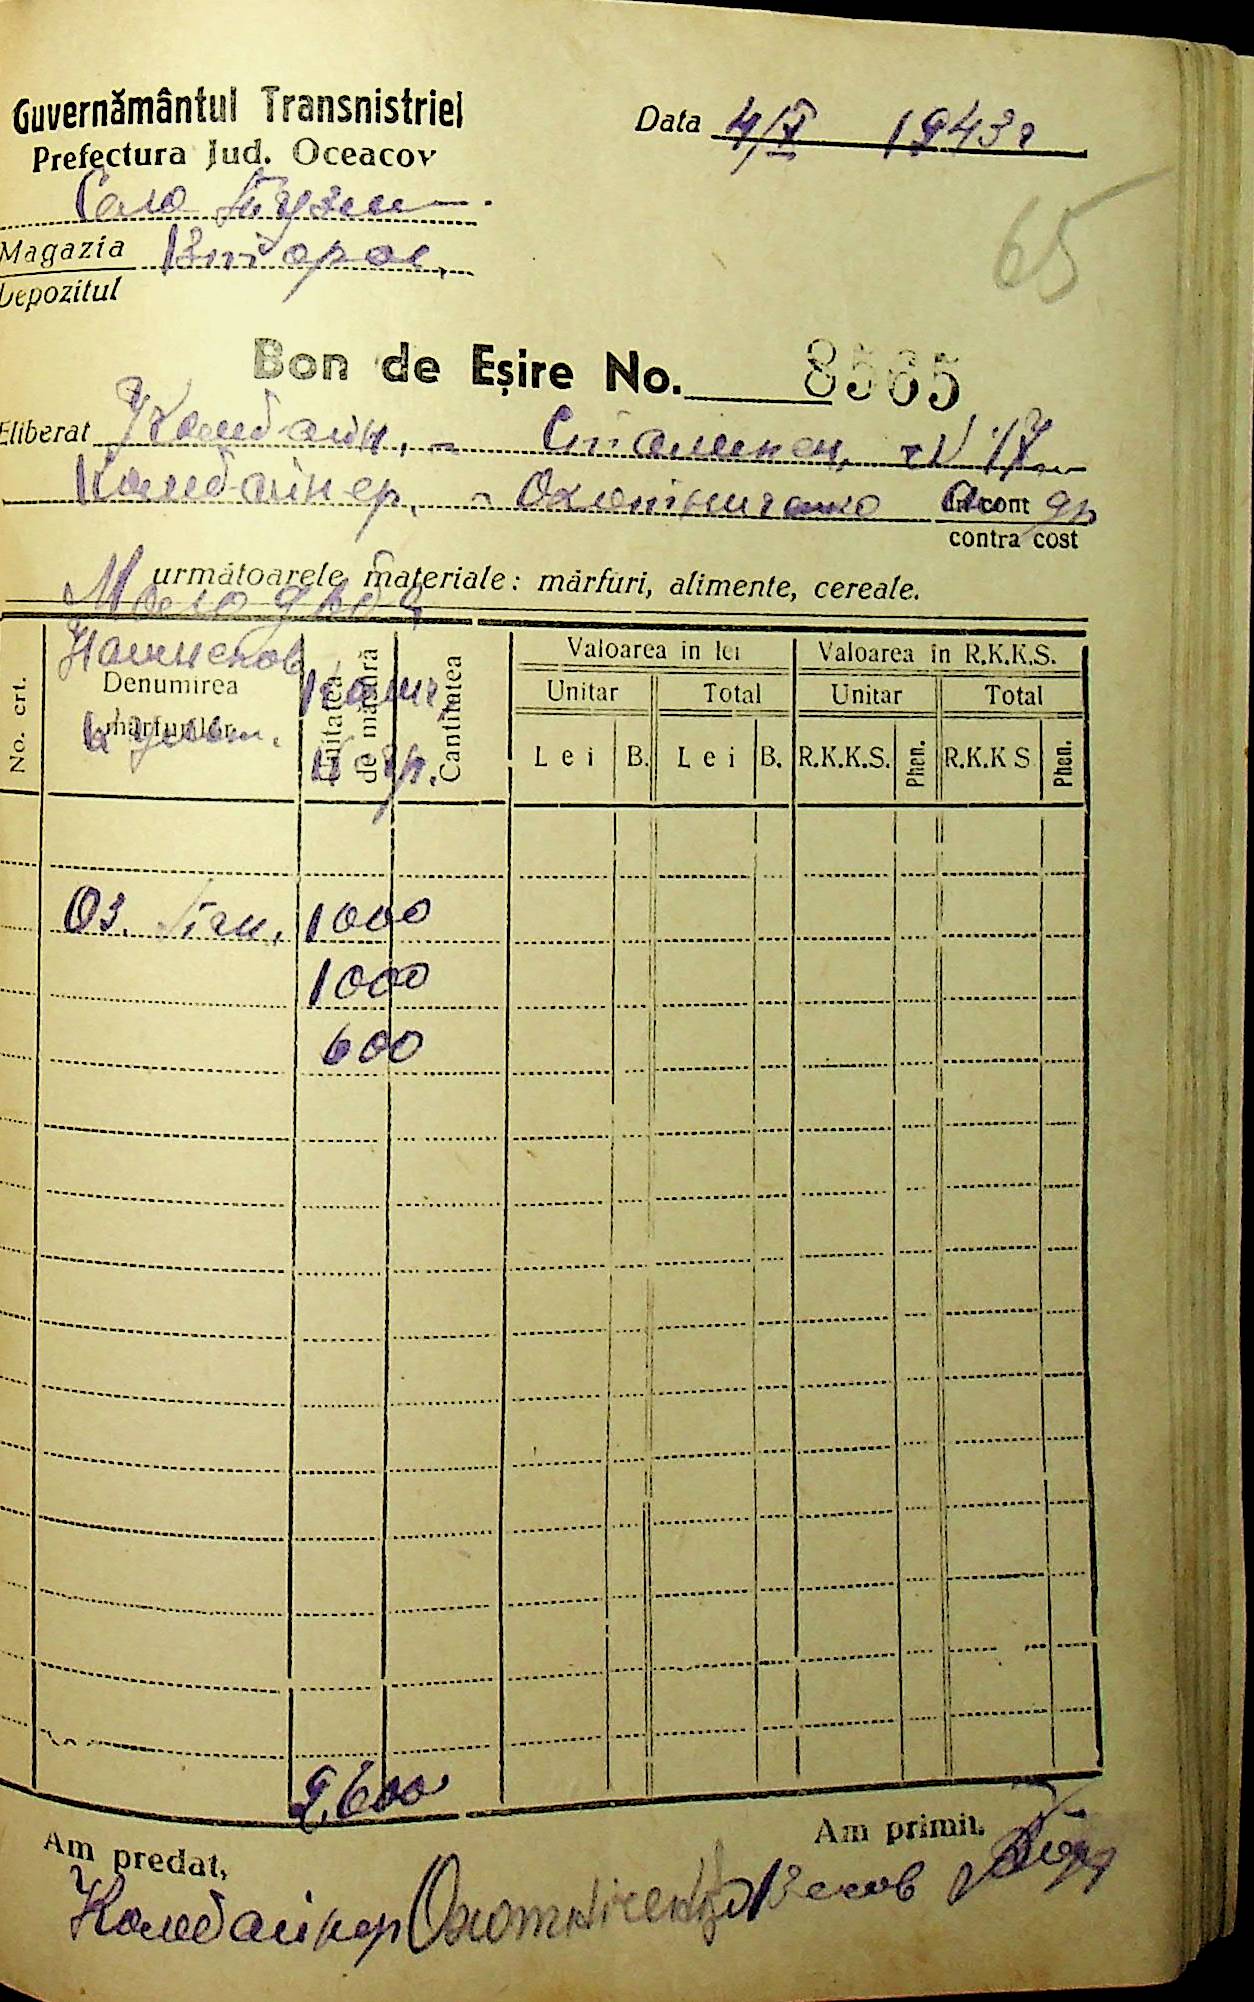 Guvernământul Transnistriei
Data 4/X 1943 г
Prefectura Jud. Oceacov
Село
Magazia
Depozitul
65
Bon de Eșire No. 8565
Eliberat Комбайн, - Сталинец, N 17
Комбайнер, - Охотниченко in cont
contra cost
următoarele materiale: mărfuri, alimente, cereale.
No. crt.
Наименов
Denumirea mărfurilor
Unitatea de măsură
Cantitatea
Valoarea in lei
Valoarea în R.K.K.S.
Unitar Total Unitar Total
Lei B. Lei B. R.K.K.S. Phen. R.K.K S Phen.
Оз. 1000
1000
600
2,600
Am predat, Am primit,
Комбайнер Охотниченко